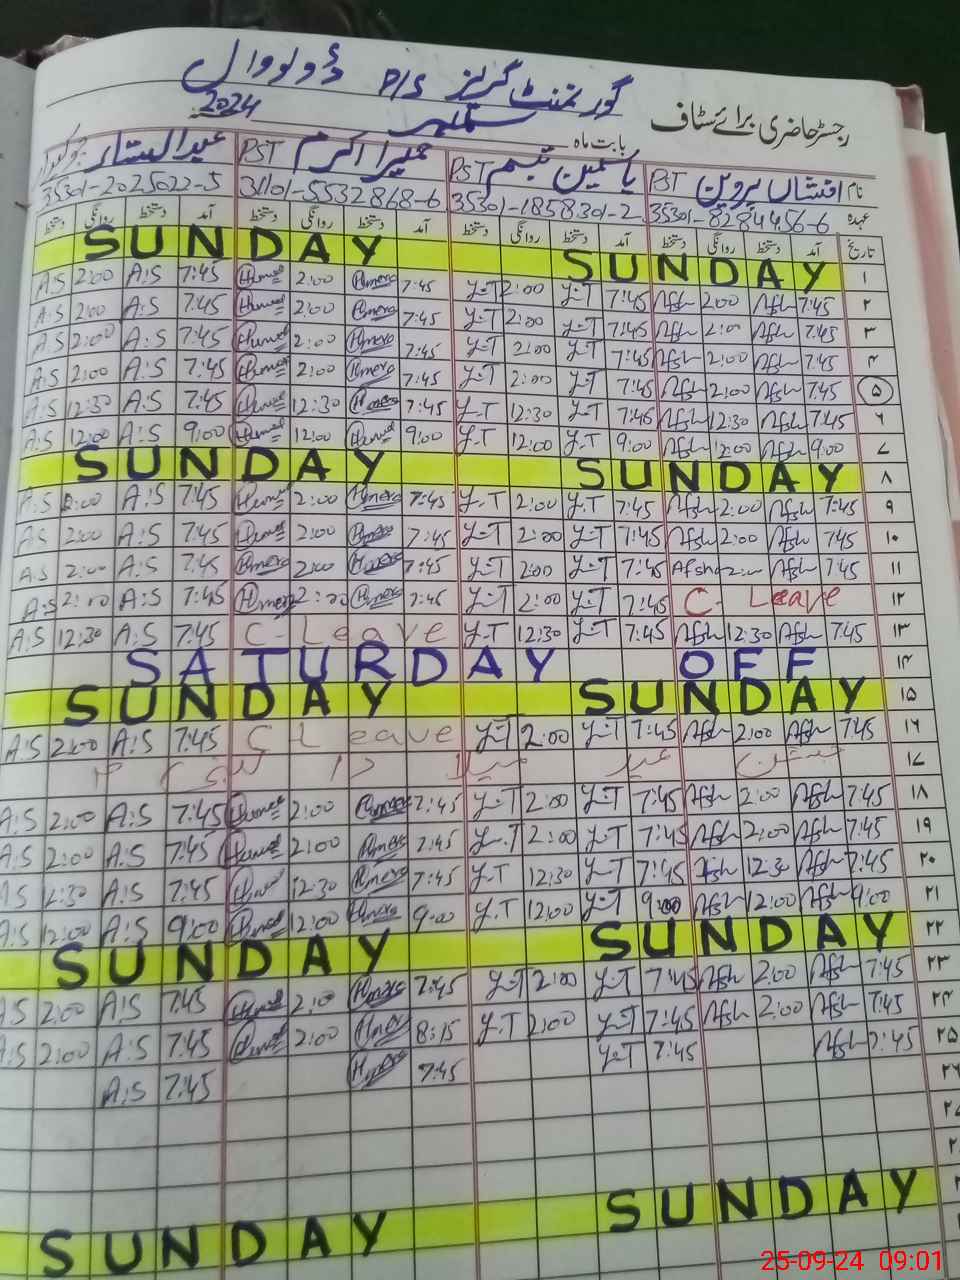 گورنمنٹ گرلز P/S ڈولووال
رجسٹر حاضری برائے سٹاف
بابت ماہ ستمبر 2024
نام افشاں پروین PST یاسمین تبسم PST حمیرا اکرم PST عبدالستار
عہدہ 35301-8284456-6 35301-1858301-2 31101-5532868-6 35301-2025022-5
تاریخ آمد دستخط روانگی دستخط آمد دستخط روانگی دستخط آمد دستخط روانگی دستخط آمد دستخط روانگی دستخط
۱ SUNDAY SUNDAY
۲ 7:45 Afsh 2:00 Afsh 7:45 Y-T 2:00 Y-T 7:45 Humera 2:00 Humera 7:45 A:S 2:00 A:S
۳ 7:45 Afsh 2:00 Afsh 7:45 Y-T 2:00 Y-T 7:45 Humera 2:00 Humera 7:45 A:S 2:00 A:S
۴ 7:45 Afsh 2:00 Afsh 7:45 Y-T 2:00 Y-T 7:45 Humera 2:00 Humera 7:45 A:S 2:00 A:S
۵ 7:45 Afsh 2:00 Afsh 7:45 Y-T 2:00 Y-T 7:45 Humera 2:00 Humera 7:45 A:S 2:00 A:S
۶ 7:45 Afsh 12:30 Afsh 7:45 Y-T 12:30 Y-T 7:45 Humera 12:30 Humera 7:45 A:S 12:30 A:S
۷ 9:00 Afsh 12:00 Afsh 9:00 Y-T 12:00 Y-T 9:00 Humera 12:00 Humera 9:00 A:S 12:00 A:S
۸ SUNDAY SUNDAY
۹ 7:45 Afsh 2:00 Afsh 7:45 Y-T 2:00 Y-T 7:45 Humera 2:00 Humera 7:45 A:S 2:00 A:S
۱۰ 7:45 Afsh 2:00 Afsh 7:45 Y-T 2:00 Y-T 7:45 Humera 2:00 Humera 7:45 A:S 2:00 A:S
۱۱ 7:45 Afsh 2:00 Afsh 7:45 Y-T 2:00 Y-T 7:45 Humera 2:00 Humera 7:45 A:S 2:00 A:S
۱۲ C- Leave 7:45 Y-T 2:00 Y-T 7:45 Humera 2:00 Humera 7:45 A:S 2:00 A:S
۱۳ 7:45 Afsh 12:30 Afsh 7:45 Y-T 12:30 Y-T C-Leave 7:45 A:S 12:30 A:S
۱۴ SATURDAY OFF
۱۵ SUNDAY SUNDAY
۱۶ 7:45 Afsh 2:00 Afsh 7:45 Y-T 2:00 Y-T C Leave 7:45 A:S 2:00 A:S
۱۷ جشن عید میلاد
۱۸ 7:45 Afsh 2:00 Afsh 7:45 Y-T 2:00 Y-T 7:45 Humera 2:00 Humera 7:45 A:S 2:00 A:S
۱۹ 7:45 Afsh 2:00 Afsh 7:45 Y-T 2:00 Y-T 7:45 Humera 2:00 Humera 7:45 A:S 2:00 A:S
۲۰ 7:45 Afsh 12:30 Afsh 7:45 Y-T 12:30 Y-T 7:45 Humera 12:30 Humera 7:45 A:S 12:30 A:S
۲۱ 9:00 Afsh 12:00 Afsh 9:00 Y-T 12:00 Y-T 9:00 Humera 12:00 Humera 9:00 A:S 12:00 A:S
۲۲ SUNDAY SUNDAY
۲۳ 7:45 Afsh 2:00 Afsh 7:45 Y-T 2:00 Y-T 7:45 Humera 2:00 Humera 7:45 A:S 2:00 A:S
۲۴ 7:45 Afsh 2:00 Afsh 7:45 Y-T 2:00 Y-T 8:15 Humera 2:00 Humera 7:45 A:S 2:00 A:S
۲۵ 7:45 Afsh 7:45 Y-T 7:45 Humera 7:45 A:S
۲۶
SUNDAY SUNDAY
25-09-24 09:01